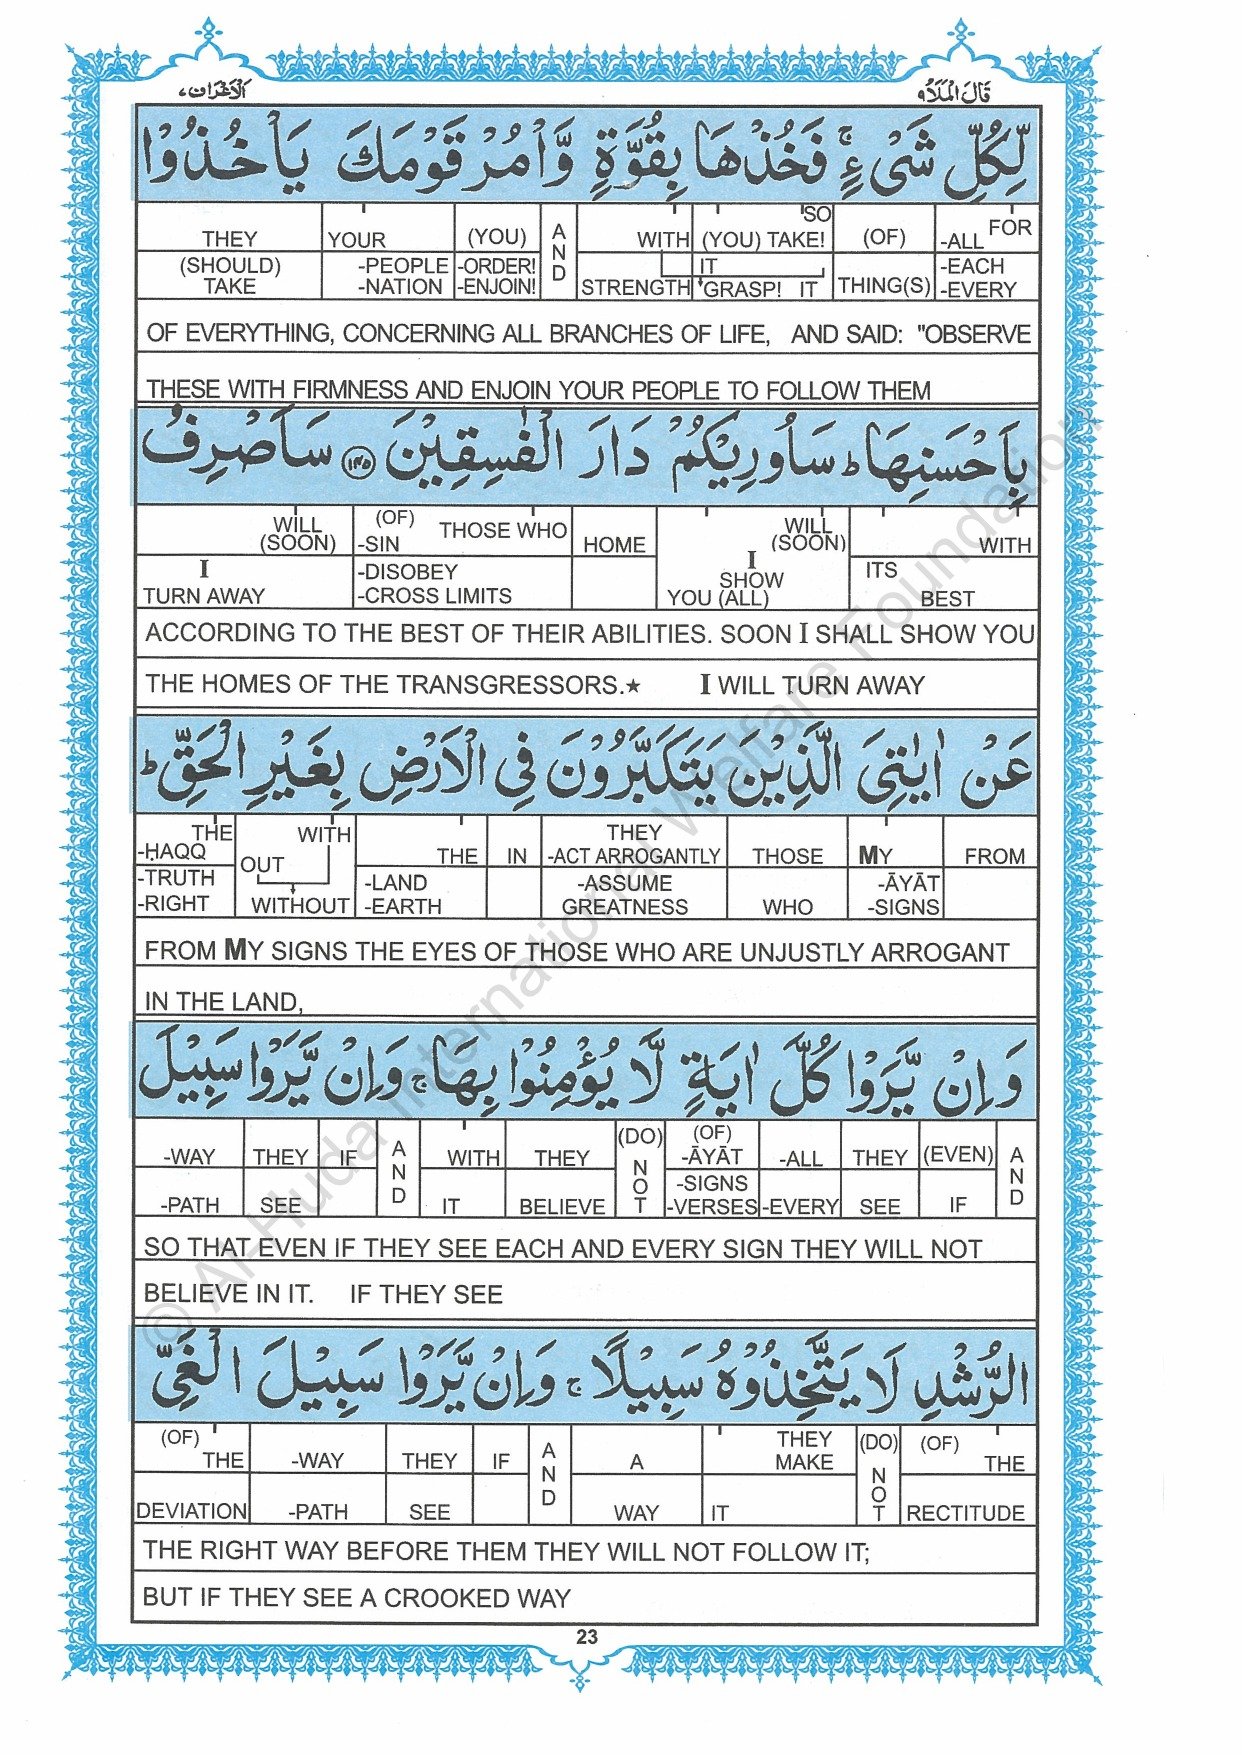 الاعراف ٧ قال الملأ ٩
لِّكُلِّ شَىْءٍ ۚ فَخُذْهَا بِقُوَّةٍ وَّاْمُرْ قَوْمَكَ يَاْخُذُوْا
THEY YOUR (YOU) AND WITH (YOU) TAKE! SO (OF) -ALL FOR
(SHOULD) TAKE -PEOPLE -NATION -ORDER! -ENJOIN! STRENGTH IT GRASP! IT THING(S) -EACH -EVERY
OF EVERYTHING, CONCERNING ALL BRANCHES OF LIFE, AND SAID: "OBSERVE
THESE WITH FIRMNESS AND ENJOIN YOUR PEOPLE TO FOLLOW THEM
بِاَحْسَنِهَا ؕ سَاُورِيْكُمْ دَارَ الْفٰسِقِيْنَ ۝١٤٥ سَاَصْرِفُ
WILL (SOON) (OF) -SIN THOSE WHO HOME WILL (SOON) WITH
I TURN AWAY -DISOBEY -CROSS LIMITS I SHOW YOU (ALL) ITS BEST
ACCORDING TO THE BEST OF THEIR ABILITIES. SOON I SHALL SHOW YOU
THE HOMES OF THE TRANSGRESSORS.★ I WILL TURN AWAY
عَنْ اٰيٰتِىَ الَّذِيْنَ يَتَكَبَّرُوْنَ فِى الْاَرْضِ بِغَيْرِ الْحَقِّ ؕ
THE -ḤAQQ WITH OUT THE IN THEY -ACT ARROGANTLY THOSE MY FROM
-TRUTH -RIGHT WITHOUT -LAND -EARTH -ASSUME GREATNESS WHO -ĀYĀT -SIGNS
FROM MY SIGNS THE EYES OF THOSE WHO ARE UNJUSTLY ARROGANT
IN THE LAND,
وَاِنْ يَّرَوْا كُلَّ اٰيَةٍ لَّا يُؤْمِنُوْا بِهَا ۚ وَاِنْ يَّرَوْا سَبِيْلَ
-WAY THEY IF AND WITH THEY (DO) NOT (OF) -ĀYĀT -ALL THEY (EVEN) AND
-PATH SEE IT BELIEVE -SIGNS -VERSES -EVERY SEE IF
SO THAT EVEN IF THEY SEE EACH AND EVERY SIGN THEY WILL NOT
BELIEVE IN IT. IF THEY SEE
الرُّشْدِ لَا يَتَّخِذُوْهُ سَبِيْلًا ۚ وَاِنْ يَّرَوْا سَبِيْلَ الْغَىِّ
(OF) THE -WAY THEY IF AND A THEY MAKE (DO) NOT (OF) THE
DEVIATION -PATH SEE WAY IT RECTITUDE
THE RIGHT WAY BEFORE THEM THEY WILL NOT FOLLOW IT;
BUT IF THEY SEE A CROOKED WAY
23
© Al-Huda International Welfare Foundation